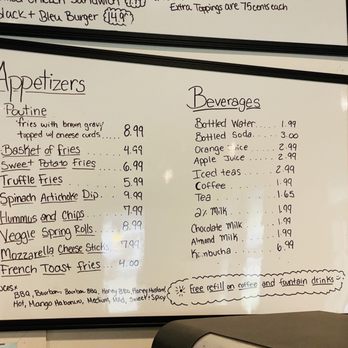 Black + Bleu Burger 14.99
Extra Toppings are 75 cents each
Appetizers
Poutine
fries with brown gravy
topped w/ cheese curds . . . 8.99
Basket of Fries . . . . 4.99
Sweet Potato Fries . . . . 6.99
Truffle Fries . . . . 5.99
Spinach Artichoke Dip . . 9.99
Hummus and Chips . . . . 7.99
Veggie Spring Rolls . . . . 8.99
Mozzarella Cheese Sticks . . 7.99
French Toast fries . . . 4.00
BBQ, Bourbon, Bourbon BBQ, Honey BBQ, Honey Mustard
Hot, Mango Habanero, Medium, Mild, Sweet + Spicy
Beverages
Bottled Water . . . . 1.99
Bottled Soda . . . . 3.00
Orange Juice . . . . 2.99
Apple Juice . . . . 2.99
Iced teas . . . . 2.99
Coffee . . . . 1.99
Tea . . . . 1.65
2% Milk . . . . 1.99
Chocolate Milk . . . . 1.99
Almond Milk . . . . 1.99
Kombucha . . . . 6.99
Free refill on coffee and fountain drinks